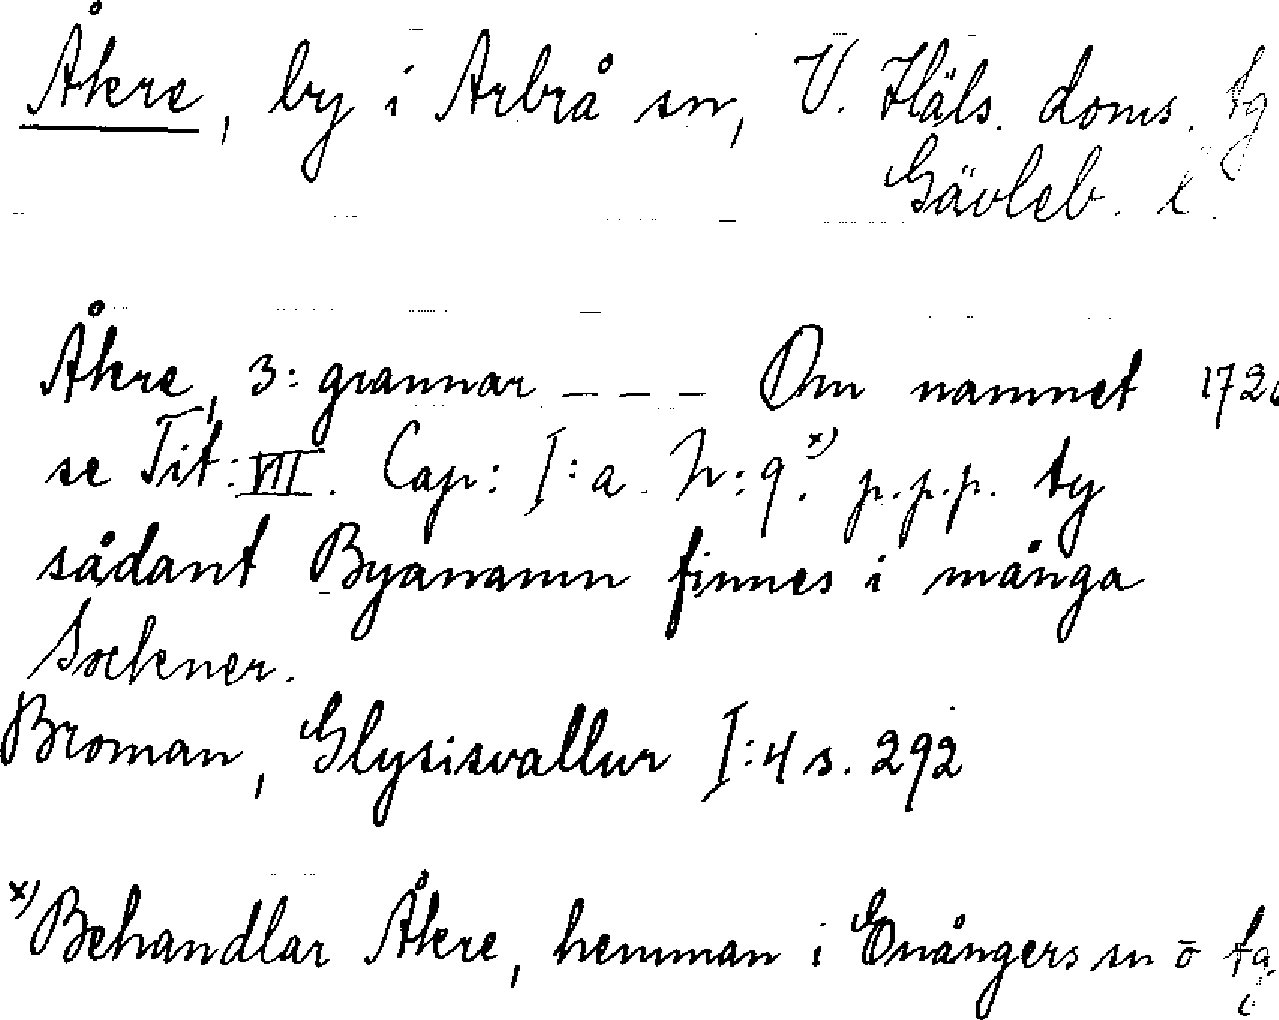 Åkre, by i Arbrå sn, V. Häls. doms. tg
Gävleb. l.
Åkre, 3: grannar _ _ _ Om namnet 172
se Tit: VII. Cap: I: a. N: 9.x) p.p.p. ty
sådant Byanamn finnes i många
Sockner.
Broman, Glysisvallur I:4 s. 292
x) Behandlar Åkre, hemman i Enångers sn o tg